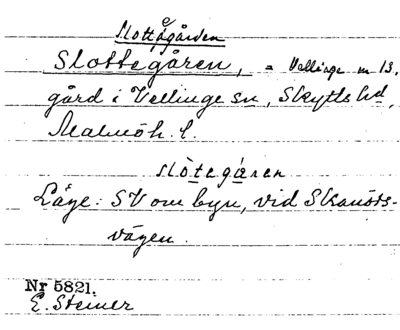 Slottsgården
Slottegåren, = Vellinge nr 13.
gård i Vellinge sn, Skytts hd,
Malmöh. l.
slòtegå̀ren
Läge: SV om byn, vid Skanörs-
vägen.
Nr 5821.
E. Steiner